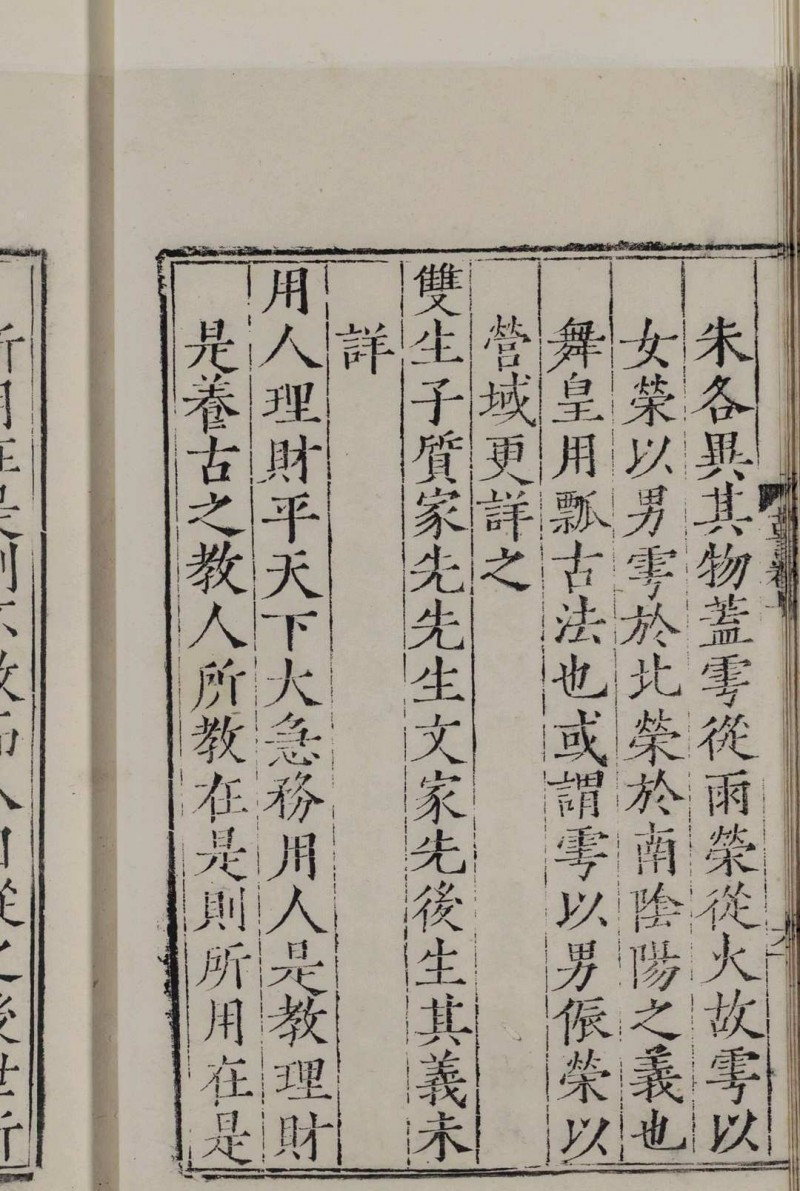 朱各異其物蓋雩從雨榮從火故雩以
女榮以男雩於北榮於南陰陽之義也
舞皇用瓢古法也或謂雩以男侲榮以
營域更詳之
雙生子質家先先生文家先後生其義未
詳
用人理財平天下大急務用人是教理財
是養古之教人所教在是則所用在是
所用在是則不教而人自從之後世所